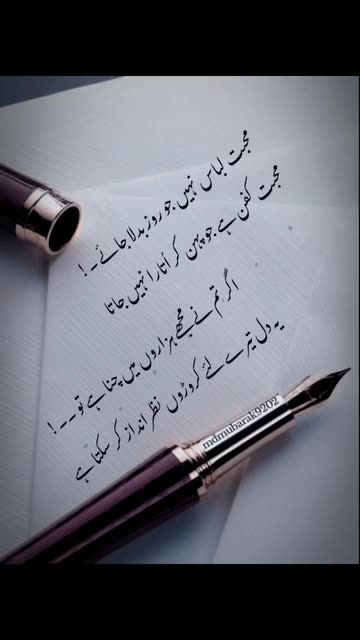 محبت لباس نہیں جو روز بدلا جائے۔!
محبت کفن ہے جو پہن کر اُتارا نہیں جاتا
اگر تم نے مجھے ہزاروں میں چنا ہے تو۔۔!
یہ دل تیرے لئے کروڑوں نظر انداز کر سکتا ہے
mdmubarak9202